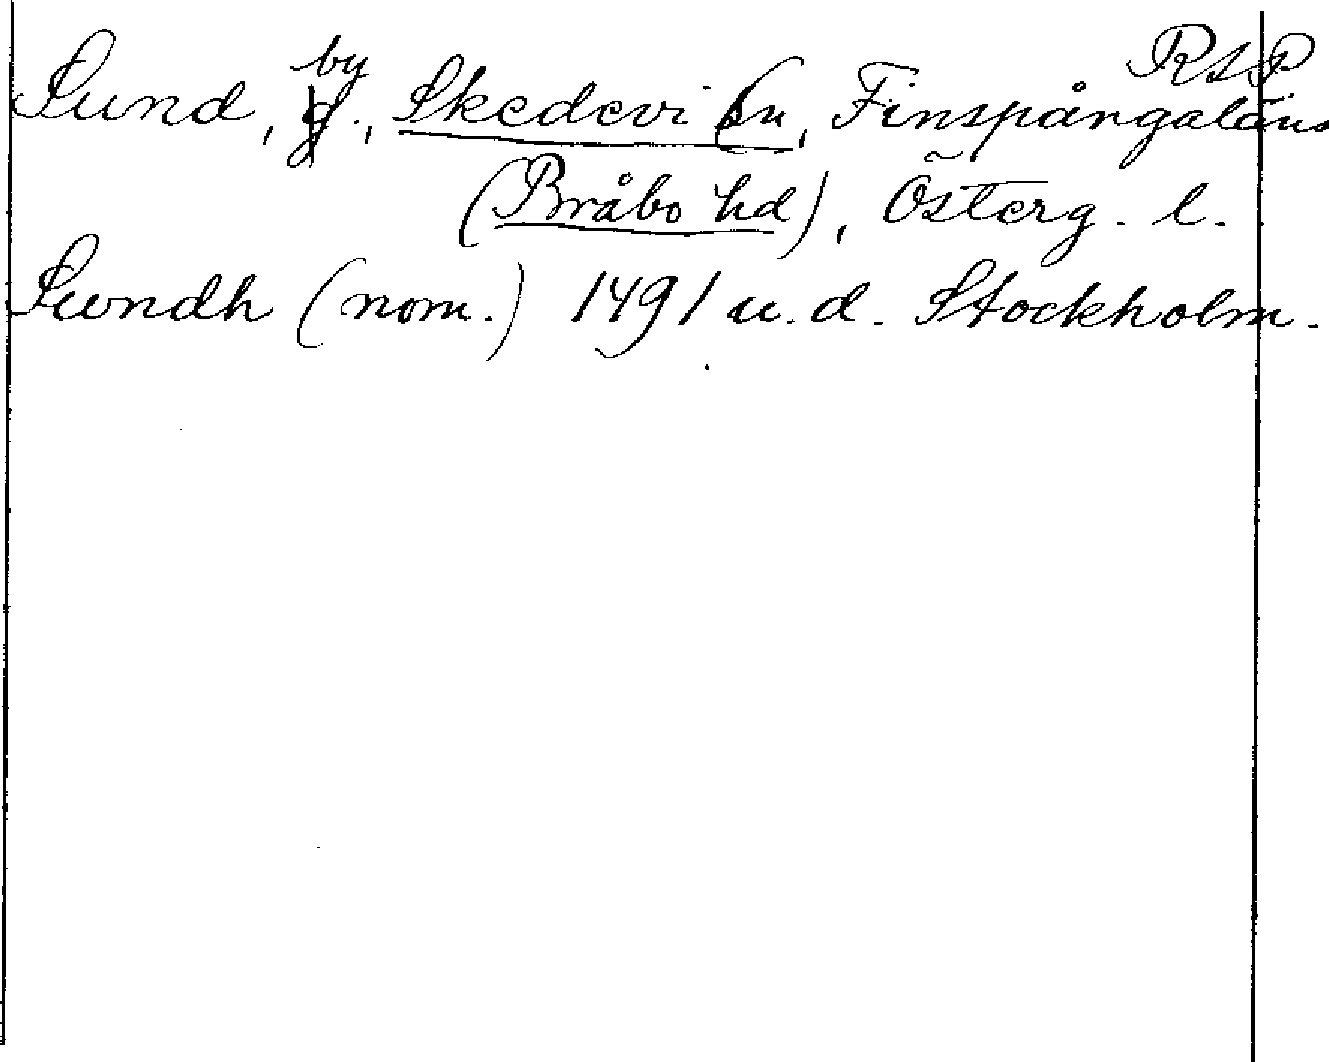 RAP
Sund, by, Skedevi sn, Finspångaläns
(Bråbo hd), Österg. l.
Sundh (nom.) 1491 u. d. Stockholm.